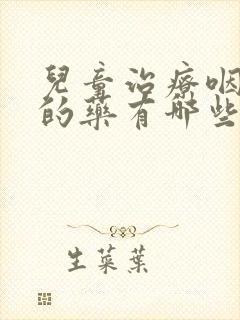 兒童治療咽
的藥有哪些
生菜葉